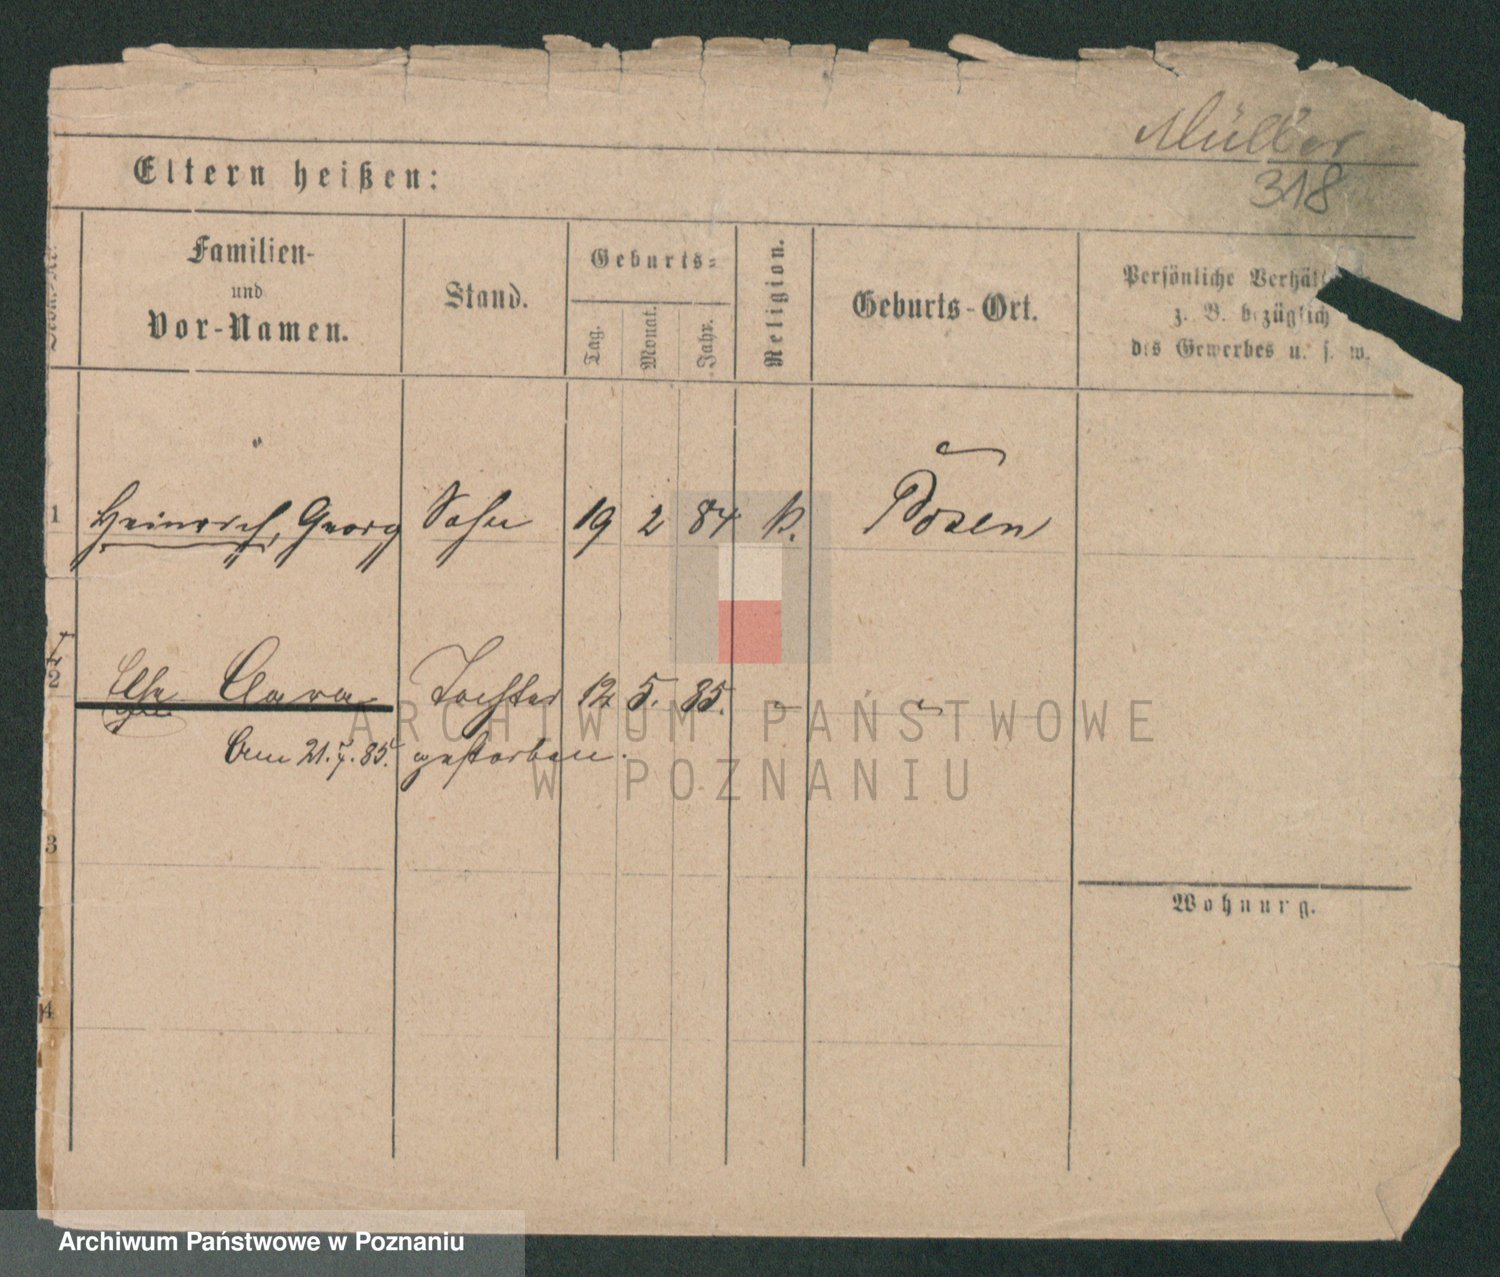 Müller
318
Eltern heißen:
Familien-
und
Vor-Namen.
Stand.
Geburts-
Tag.
Monat.
Jahr.
Religion.
Geburts-Ort.
Persönliche
z. B. bezüglich
des Gewerbes u. s. w.
1 Heinrich, Georg Sohn 19 2 84 k. Posen
2 Else Clara Tochter 12 5. 85. " "
Am 21. 7. 85. gestorben.
3
Wohnung.
4
ARCHIWUM PAŃSTWOWE
W POZNANIU
Archiwum Państwowe w Poznaniu